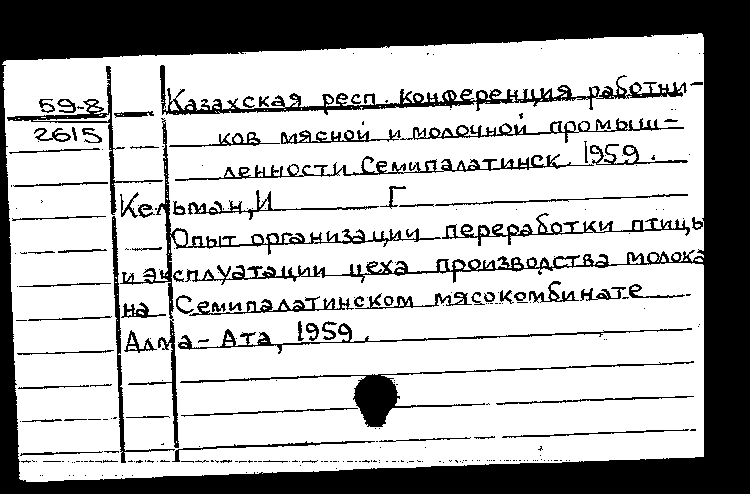 59-8
2615
Казахская респ. конференция работни-
ков мясной и молочной промыш-
ленности. Семипалатинск. 1959.
Кельман, И Г
Опыт организации переработки птицы
и эксплуатации цеха производства молока
на Семипалатинском мясокомбинате
Алма-Ата, 1959.